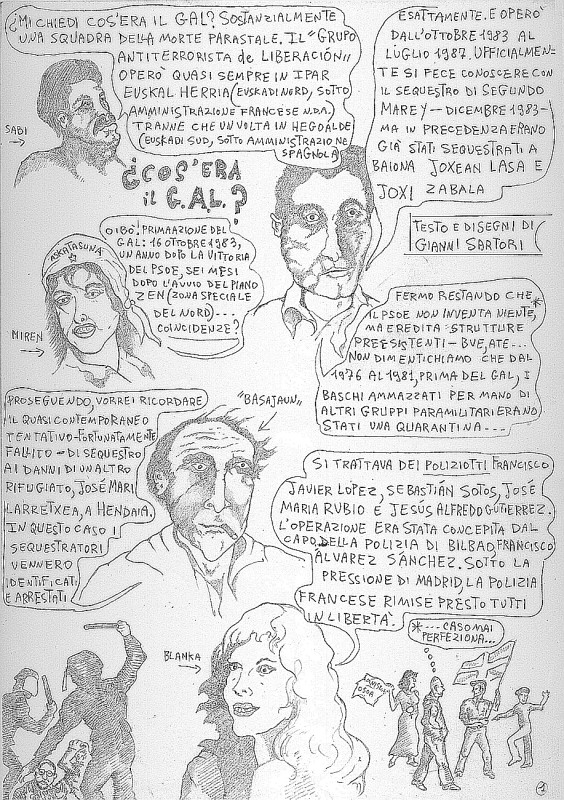 ¿MI CHIEDI COS'ERA IL GAL? SOSTANZIALMENTE
UNA SQUADRA DELLA MORTE PARASTALE. IL "GRUPO
ANTITERRORISTA de LIBERACIÓN"
OPERÒ QUASI SEMPRE IN IPAR
EUSKAL HERRIA (EUSKADI NORD, SOTTO
AMMINISTRAZIONE FRANCESE N.D.A.)
TRANNE CHE UN VOLTA IN HEGOALDE
(EUSKADI SUD, SOTTO AMMINISTRAZIONE
SPAGNOLA)
SABI
ESATTAMENTE. E OPERÒ
DALL'OTTOBRE 1983 AL
LUGLIO 1987. UFFICIALMEN=
TE SI FECE CONOSCERE CON
IL SEQUESTRO DI SEGUNDO
MAREY - DICEMBRE 1983 -
MA IN PRECEDENZA ERANO
GIÀ STATI SEQUESTRATI A
BAIONA JOXEAN LASA E
JOXI ZABALA
¿COS'ERA
iL G.A.L.?
TESTO E DISEGNI DI
GIANNI SARTORI
OIBÒ! PRIMA AZIONE DEL
GAL: 16 OTTOBRE 1983,
UN ANNO DOPO LA VITTORIA
DEL PSOE, SEI MESI
DOPO L'AVVIO DEL PIANO
ZEN (ZONA SPECIALE
DEL NORD)...
COINCIDENZE?
ASKATASUNA
MIREN
FERMO RESTANDO CHE
IL PSOE NON INVENTA NIENTE,*
MA EREDITA STRUTTURE
PREESISTENTI - BVE, ATE...
NON DIMENTICHIAMO CHE DAL
1976 AL 1981, PRIMA DEL GAL, I
BASCHI AMMAZZATI PER MANO DI
ALTRI GRUPPI PARAMILITARI ERANO
STATI UNA QUARANTINA...
PROSEGUENDO, VORREI RICORDARE
IL QUASI CONTEMPORANEO
TENTATIVO - FORTUNATAMENTE
FALLITO - DI SEQUESTRO
AI DANNI DI UN ALTRO
RIFUGIATO, JOSÉ MARI
LARRETXEA, A HENDAIA.
IN QUESTO CASO I
SEQUESTRATORI
VENNERO
IDENTIFICATI
E ARRESTATI
"BASAJAUN"
SI TRATTAVA DEI POLIZIOTTI FRANCISCO
JAVIER LOPEZ, SEBASTIÁN SOTOS, JOSÉ
MARIA RUBIO E JESÙS ALFREDO GUTIERREZ.
L'OPERAZIONE ERA STATA CONCEPITA DAL
CAPO DELLA POLIZIA DI BILBAO, FRANCISCO
ÁLVAREZ SÁNCHEZ. SOTTO LA
PRESSIONE DI MADRID, LA POLIZIA
FRANCESE RIMISE PRESTO TUTTI
IN LIBERTÀ.
*...CASOMAI
PERFEZIONA...
BLANKA
1